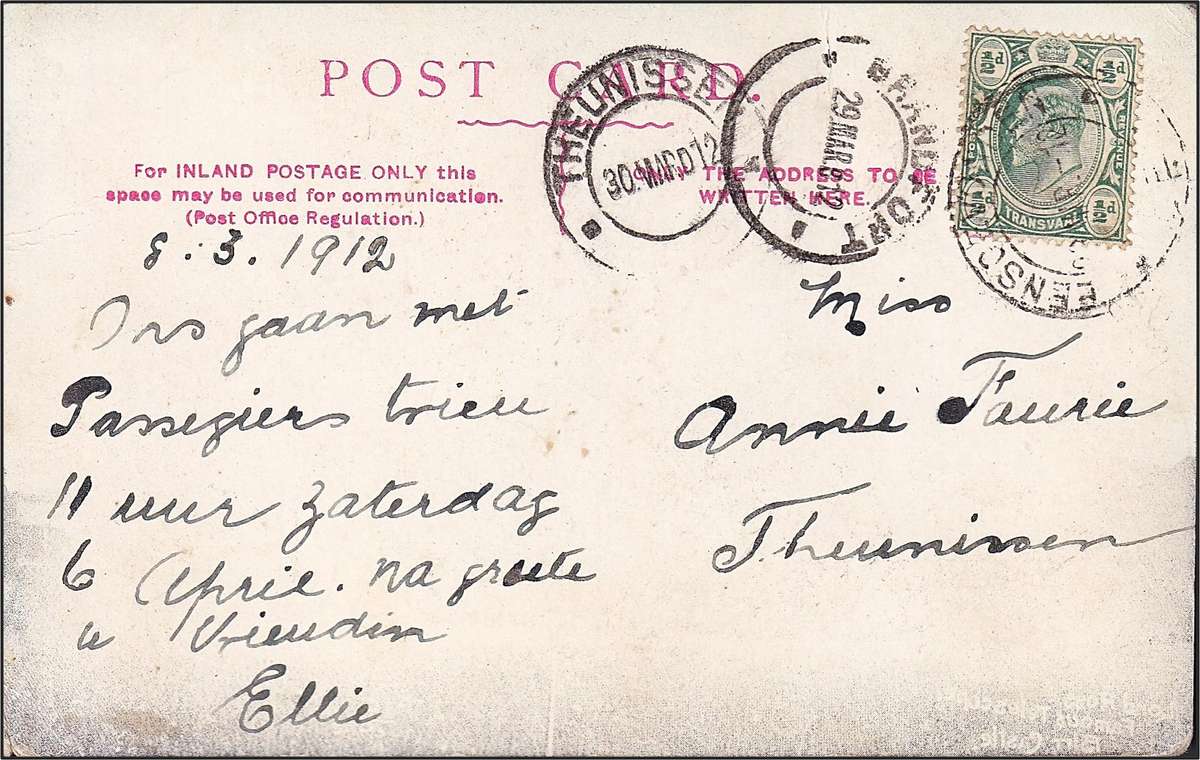 POST CARD.
For INLAND POSTAGE ONLY this
space may be used for communication.
(Post Office Regulation.)
THE ADDRESS TO BE
WRITTEN HERE.
THEUNISSEN
30 MAR 0 12
BRANDFORT
29 MAR 912
½d ½d
POSTAGE REVENUE
TRANSVAAL
½d ½d
8.3.1912
Ons gaan met
Passegiers trieu
11 uur Zaterdag
6 April. na groete
u Vriendin
Ellie
Miss
Annie Faurie
Theunissen